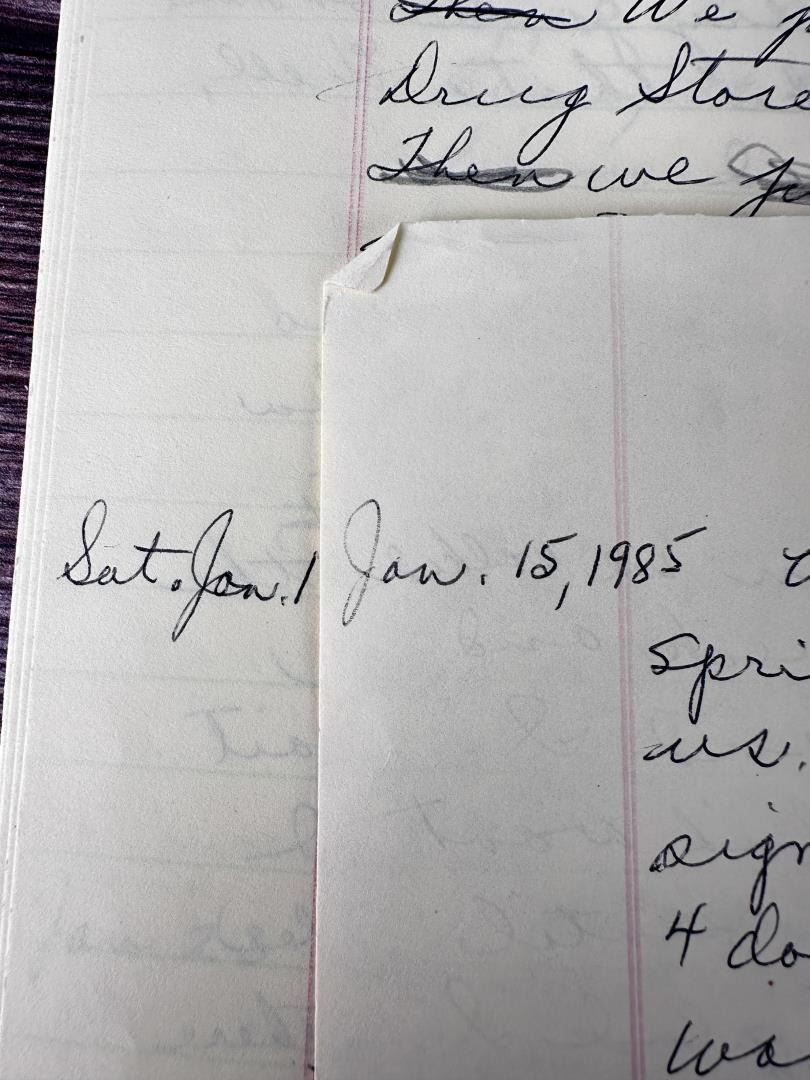 Then We
Drug Store
Then we
Sat. Jan. 1
Jan. 15, 1985
Spri
us.
sign
4 do
wa